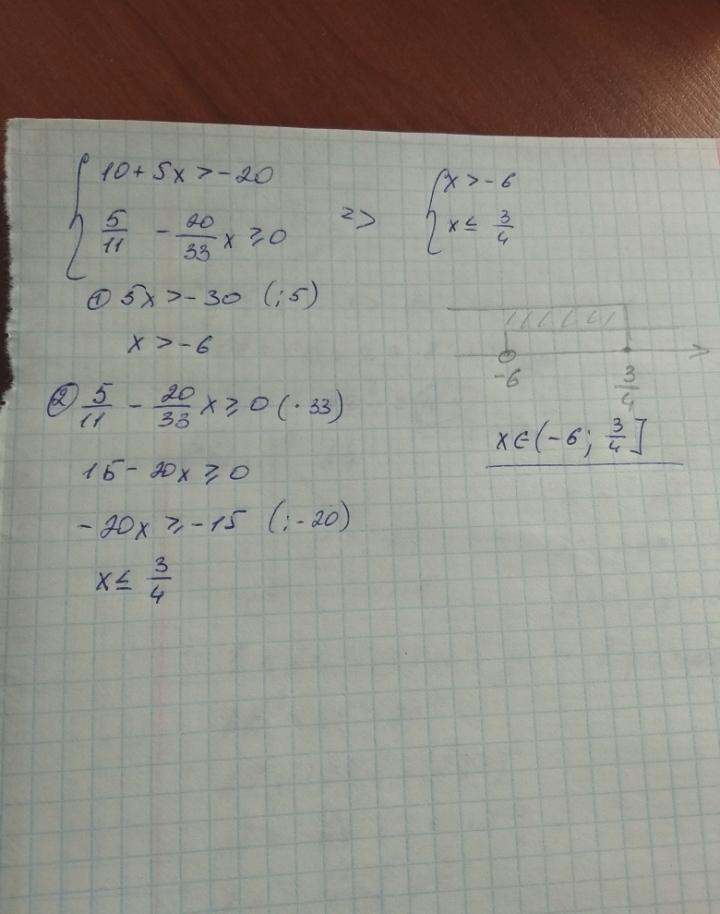 { 10 + 5x > -20
5/11 - 20/33 x ≥ 0
=>
{ x > -6
x ≤ 3/4
① 5x > -30 (:5)
x > -6
② 5/11 - 20/33 x ≥ 0 (· 33)
15 - 20x ≥ 0
-20x ≥ -15 (: -20)
x ≤ 3/4
-6 3/4
x ∈ (-6; 3/4]